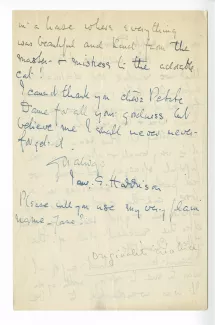 in a house where everything
was beautiful and kind from the
master & mistress to the adorable
cat!
I cannot thank you chère Petite
Dame for all your goodness but
believe me I shall never never
forget it.
Jane E. Harrison
Please will you use my very plain
name, Jane!